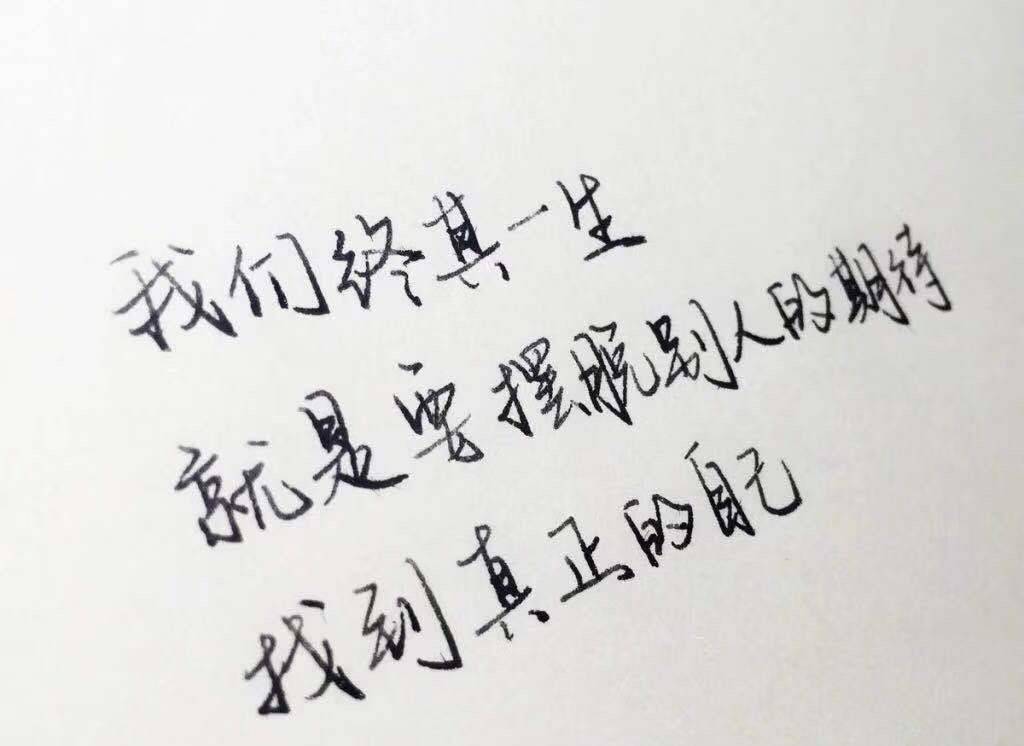 我们终其一生
就是要摆脱别人的期待
找到真正的自己